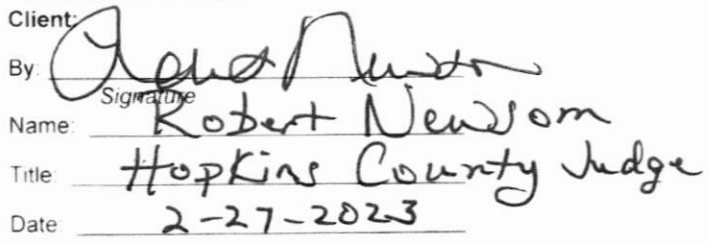 Client:
By:
Signature
Name: Robert Newsom
Title: Hopkins County Judge
Date: 2-27-2023